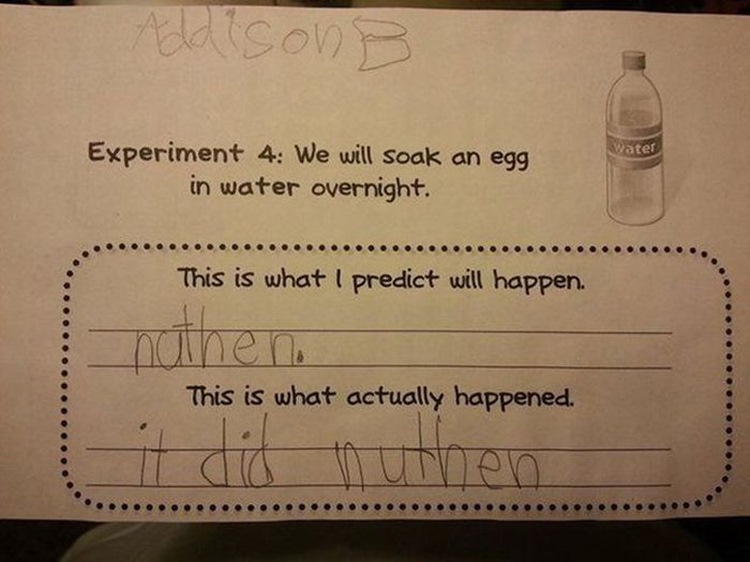 Addison B
water
Experiment 4: We will soak an egg
in water overnight.
This is what I predict will happen.
nuthen.
This is what actually happened.
it did nuthen